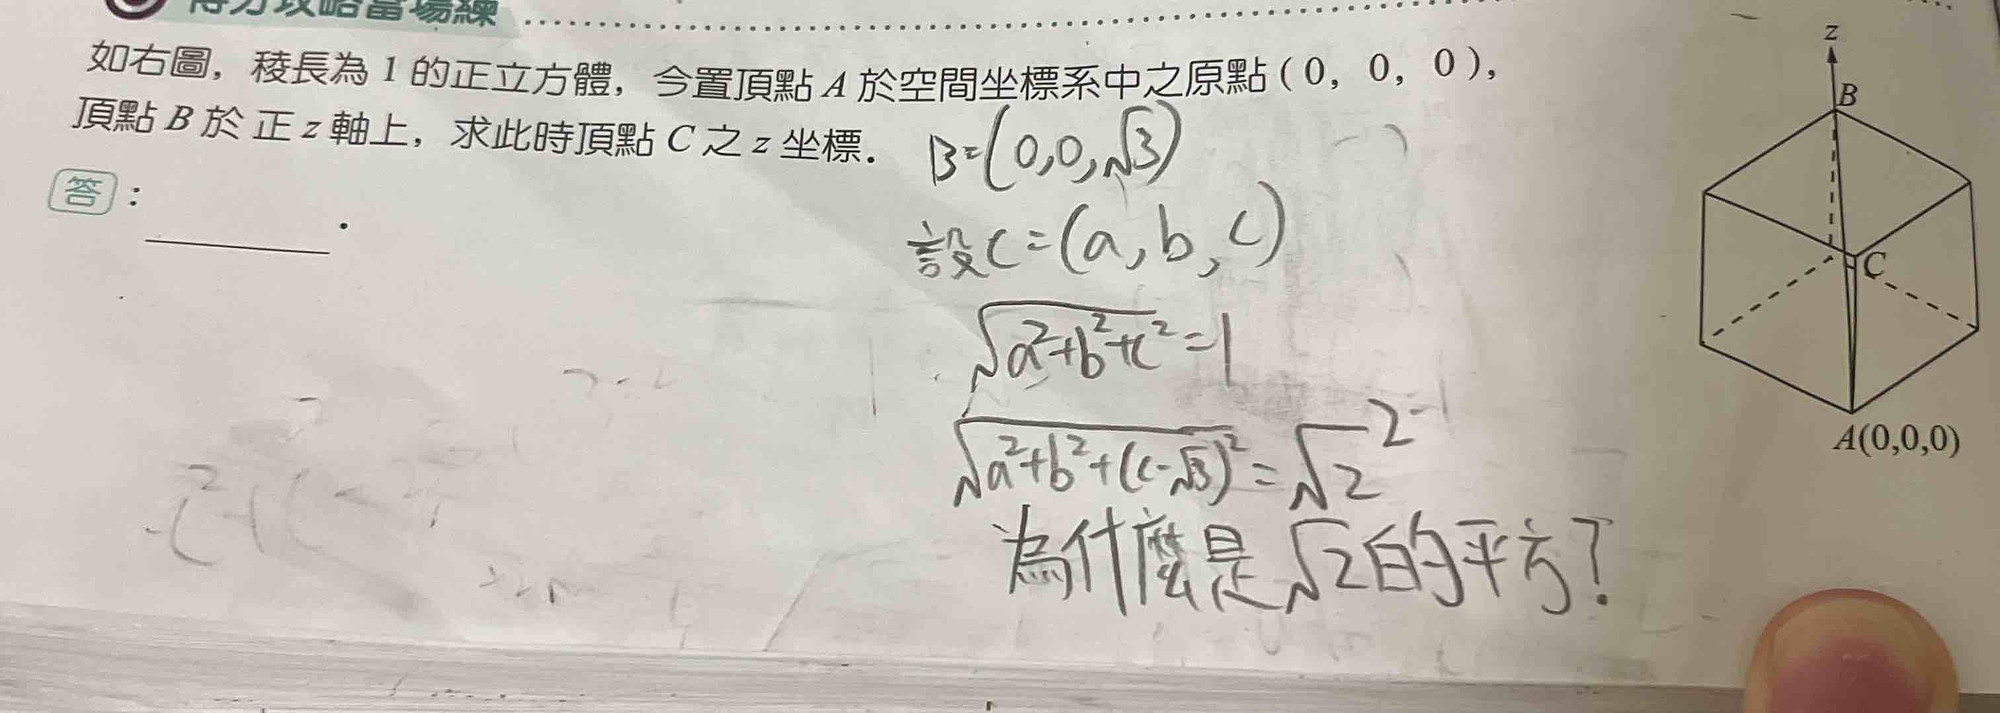 得分攻略當場練
如右圖，稜長為 1 的正立方體，今置頂點 A 於空間坐標系中之原點 (0, 0, 0)，
頂點 B 於 正 z 軸上，求此時頂點 C 之 z 坐標．
答：
B=(0,0,√3)
設C=(a,b,c)
√a²+b²+c²=1
√a²+b²+(c-√3)²=√2²
為什麼是√2的平方?
z
B
C
A(0,0,0)